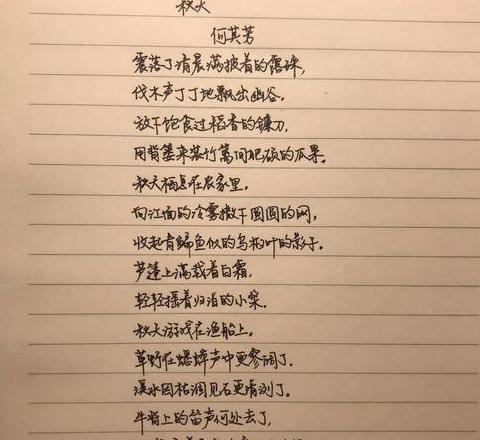 秋天
何其芳
震落了清晨满披着的露珠，
伐木声丁丁地飘出幽谷。
放下饱食过稻香的镰刀，
用背篓来装竹篱间肥硕的瓜果。
秋天栖息在农家里。
向江面的冷雾撒下圆圆的网，
收起青鳊鱼似的乌桕叶的影子。
芦篷上满载着白霜，
轻轻摇着归泊的小桨。
秋天游戏在渔船上。
草野在蟋蟀声中更寥阔了。
溪水因枯涸见石更清冽了。
牛背上的笛声何处去了，